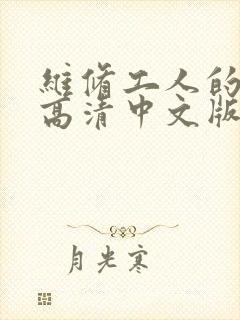 维修工人的
高清中文版
月光寒